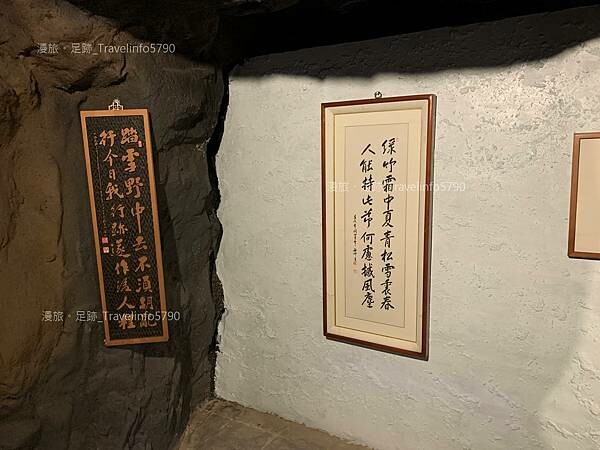 漫旅。足跡_Travelinfo5790
踏雪野中去不須胡亂
行今日我行跡遂作後人程
綠竹霜中夏青松雪裏春
人能持此節何慮撼風塵
漫旅。足跡_Travelinfo5790
漫旅。足跡_Travelinfo5790